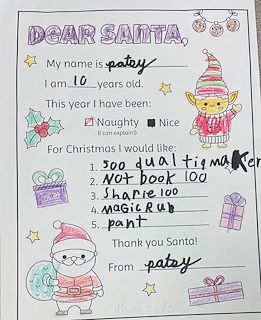 DEAR SANTA,
My name is patsy.
I am 10 years old.
This year I have been:
Naughty Nice
(I can explain!)
For Christmas I would like:
1. 500 dual tig maker
2. Not book 100
3. Sharie 100
4. MaGic Rub
5. pant
Thank you Santa!
From patsy